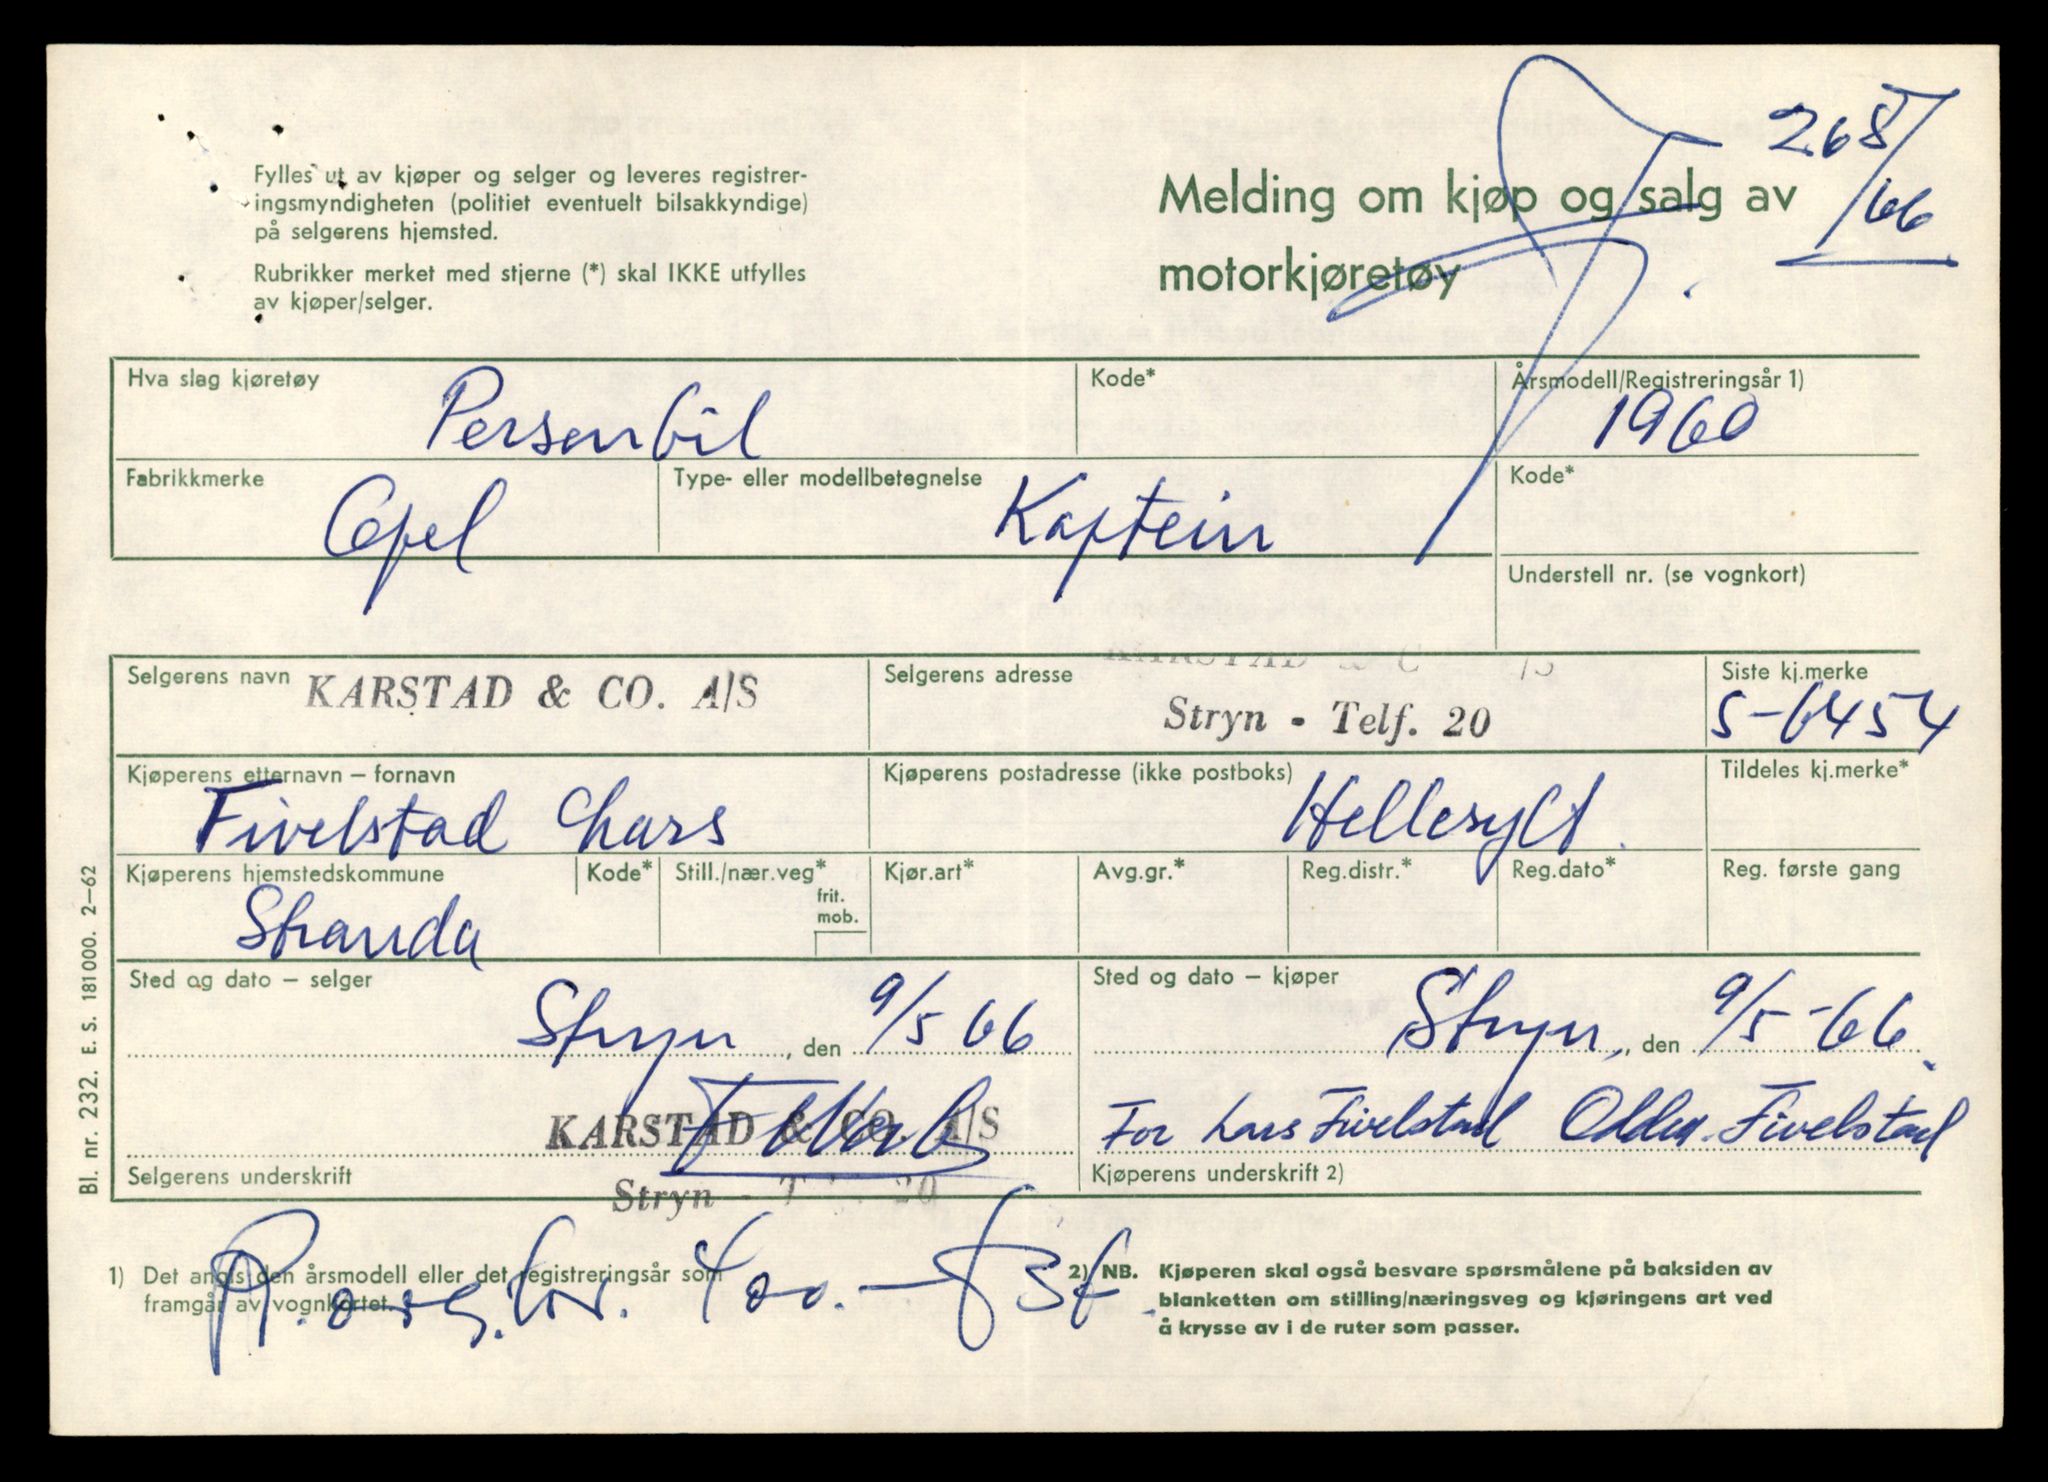 268/66
Fylles ut av kjøper og selger og leveres registrer-
ingsmyndigheten (politiet eventuelt bilsakkyndige)
på selgerens hjemsted.
Rubrikker merket med stjerne (*) skal IKKE utfylles
av kjøper/selger.
Melding om kjøp og salg av
motorkjøretøy
Hva slag kjøretøy Personbil
Kode*
Årsmodell/Registreringsår 1) 1960
Fabrikkmerke Opel
Type- eller modellbetegnelse Kaptein
Kode*
Understell nr. (se vognkort)
Selgerens navn KARSTAD & CO. A/S
Selgerens adresse Stryn - Telf. 20
Siste kj.merke S-6454
Kjøperens etternavn – fornavn Fivelstad Lars
Kjøperens postadresse (ikke postboks) Hellesylt.
Tildeles kj.merke*
Kjøperens hjemstedskommune Stranda
Kode*
Still./nær.veg*
frit.
mob.
Kjør.art*
Avg.gr.*
Reg.distr.*
Reg.dato*
Reg. første gang
Sted og dato – selger
Stryn, den 9/5 66
KARSTAD & CO. A/S
Selgerens underskrift
Stryn - T 20
Sted og dato – kjøper
Stryn, den 9/5-66.
For Lars Fivelstad Oddm. Fivelstad
Kjøperens underskrift 2)
1) Det angis den årsmodell eller det registreringsår som
framgår av vognkortet.
2) NB. Kjøperen skal også besvare spørsmålene på baksiden av
blanketten om stilling/næringsveg og kjøringens art ved
å krysse av i de ruter som passer.
400.-
Bl. nr. 232. E. S. 181000. 2–62